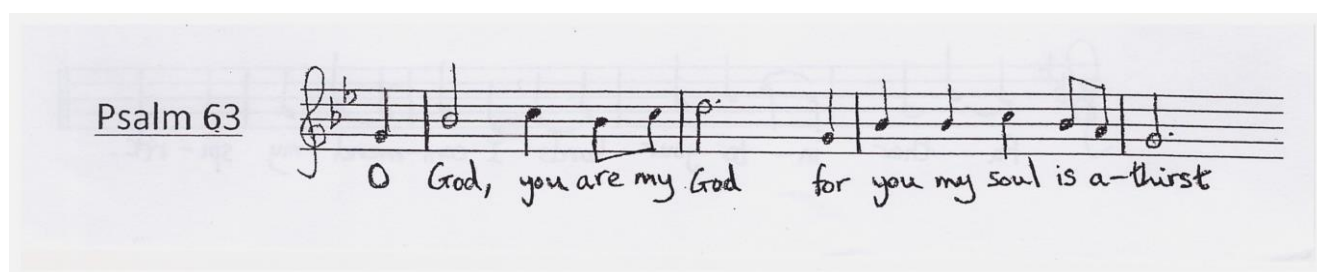 Psalm 63
O God, you are my God for you my soul is a-thirst